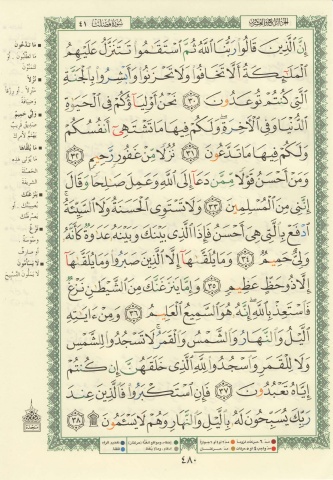 سورة فصلت ٤١
إِنَّ ٱلَّذِينَ قَالُوا۟ رَبُّنَا ٱللَّهُ ثُمَّ ٱسْتَقَٰمُوا۟ تَتَنَزَّلُ عَلَيْهِمُ
ٱلْمَلَٰٓئِكَةُ أَلَّا تَخَافُوا۟ وَلَا تَحْزَنُوا۟ وَأَبْشِرُوا۟ بِٱلْجَنَّةِ
ٱلَّتِى كُنتُمْ تُوعَدُونَ ٣٠ نَحْنُ أَوْلِيَآؤُكُمْ فِى ٱلْحَيَوٰةِ
ٱلدُّنْيَا وَفِى ٱلْءَاخِرَةِ وَلَكُمْ فِيهَا مَا تَشْتَهِىٓ أَنفُسُكُمْ
وَلَكُمْ فِيهَا مَا تَدَّعُونَ ٣١ نُزُلًا مِّنْ غَفُورٍ رَّحِيمٍ ٣٢
وَمَنْ أَحْسَنُ قَوْلًا مِّمَّن دَعَآ إِلَى ٱللَّهِ وَعَمِلَ صَٰلِحًا وَقَالَ
إِنَّنِى مِنَ ٱلْمُسْلِمِينَ ٣٣ وَلَا تَسْتَوِى ٱلْحَسَنَةُ وَلَا ٱلسَّيِّئَةُ
ٱدْفَعْ بِٱلَّتِى هِىَ أَحْسَنُ فَإِذَا ٱلَّذِى بَيْنَكَ وَبَيْنَهُۥ عَدَٰوَةٌ كَأَنَّهُۥ
وَلِىٌّ حَمِيمٌ ٣٤ وَمَا يُلَقَّىٰهَآ إِلَّا ٱلَّذِينَ صَبَرُوا۟ وَمَا يُلَقَّىٰهَآ
إِلَّا ذُو حَظٍّ عَظِيمٍ ٣٥ وَإِمَّا يَنزَغَنَّكَ مِنَ ٱلشَّيْطَٰنِ نَزْغٌ
فَٱسْتَعِذْ بِٱللَّهِ إِنَّهُۥ هُوَ ٱلسَّمِيعُ ٱلْعَلِيمُ ٣٦ وَمِنْ ءَايَٰتِهِ
ٱلَّيْلُ وَٱلنَّهَارُ وَٱلشَّمْسُ وَٱلْقَمَرُ لَا تَسْجُدُوا۟ لِلشَّمْسِ
وَلَا لِلْقَمَرِ وَٱسْجُدُوا۟ لِلَّهِ ٱلَّذِى خَلَقَهُنَّ إِن كُنتُمْ
إِيَّاهُ تَعْبُدُونَ ٣٧ فَإِنِ ٱسْتَكْبَرُوا۟ فَٱلَّذِينَ عِندَ
رَبِّكَ يُسَبِّحُونَ لَهُۥ بِٱلَّيْلِ وَٱلنَّهَارِ وَهُمْ لَا يَسْـَٔمُونَ ۩ ٣٨
٤٨٠